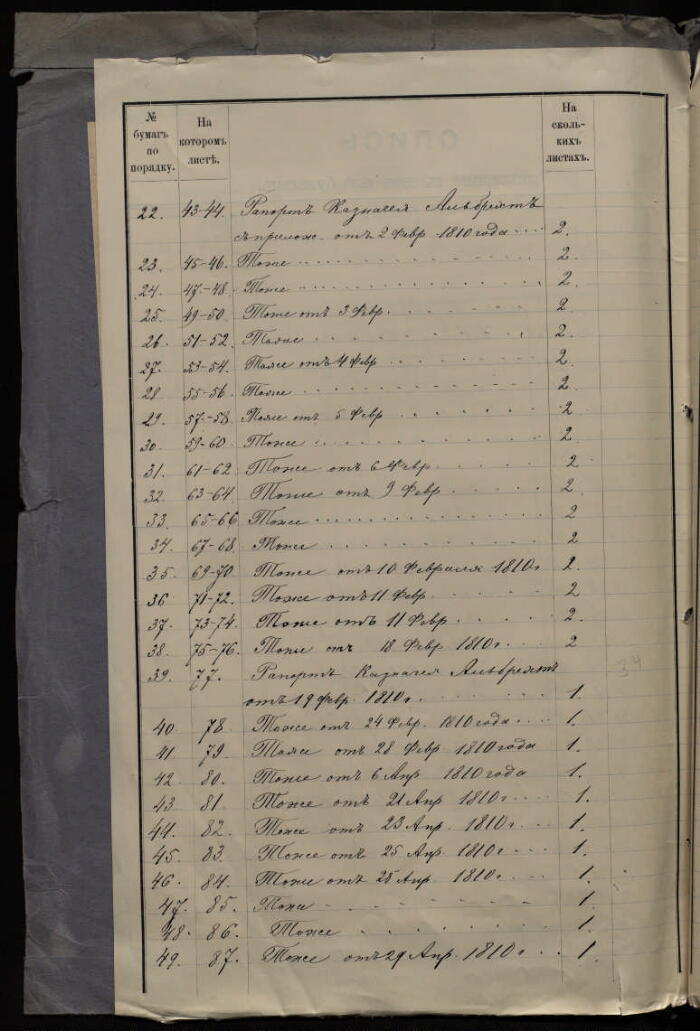 № бумагъ по порядку.
На которомъ листѣ.
На сколькихъ листахъ.
22. 43-44. Рапортъ Казначея Альбрехтъ
съ прилож. отъ 2 Февр 1810 года 2.
23. 45-46. Тоже 2
24. 47-48. Тоже 2
25. 49-50. Тоже отъ 3 Февр. 2
26. 51-52. Тоже 2.
27. 53-54. Тоже отъ 4 Февр 2
28 55-56. Тоже 2
29. 57-58. Тоже отъ 5 Февр 2
30 59-60. Тоже 2
31. 61-62. Тоже отъ 6 Февр. 2
32. 63-64 Тоже отъ 9 Февр 2
33. 65-66 Тоже 2
34. 67-68. Тоже 2
35. 69-70 Тоже отъ 10 Февраля 1810 г 2.
36 71-72. Тоже отъ 11 Февр 2
37. 73-74. Тоже отъ 11 Февр. 2.
38. 75-76. Тоже отъ 18 Февр. 1810 г. 2
39. 77. Рапортъ Казначея Альбрехтъ
отъ 19 Февр. 1810 г. 1.
40 78. Тоже отъ 24 Февр. 1810 года 1.
41 79. Тоже отъ 28 Февр 1810 года 1.
42 80. Тоже отъ 6 Апр 1810 года 1.
43 81. Тоже отъ 21 Апр 1810 г. 1.
44. 82. Тоже отъ 23 Апр. 1810 г 1.
45. 83. Тоже отъ 25 Апр. 1810 г. 1.
46. 84. Тоже отъ 25 Апр. 1810 г. 1.
47. 85. Тоже 1.
48. 86. Тоже 1.
49. 87. Тоже отъ 29 Апр. 1810 г 1.